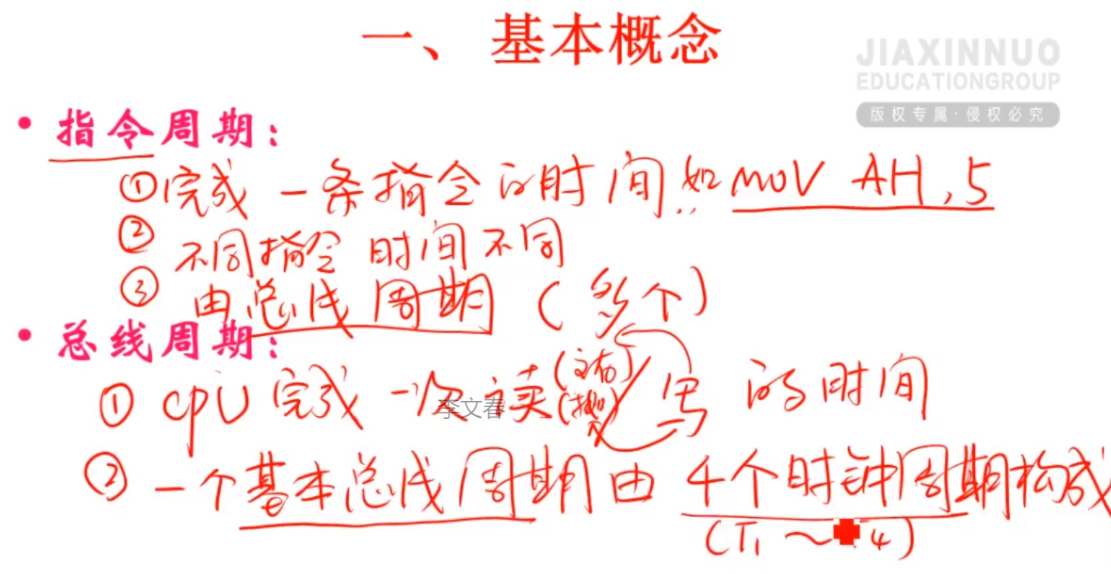 一、 基本概念
JIAXINNUO
EDUCATIONGROUP
版权专属·侵权必究
• 指令周期：
①完成 一条指令的时间 如 MOV AH,5
② 不同指令 时间不同
③ 由总线周期 (多个)
• 总线周期：
① CPU 完成 一次读(内存)/(接口)写 的时间
李文春
② 一个基本总线周期由 4个时钟周期构成
(T1 ~ 4)